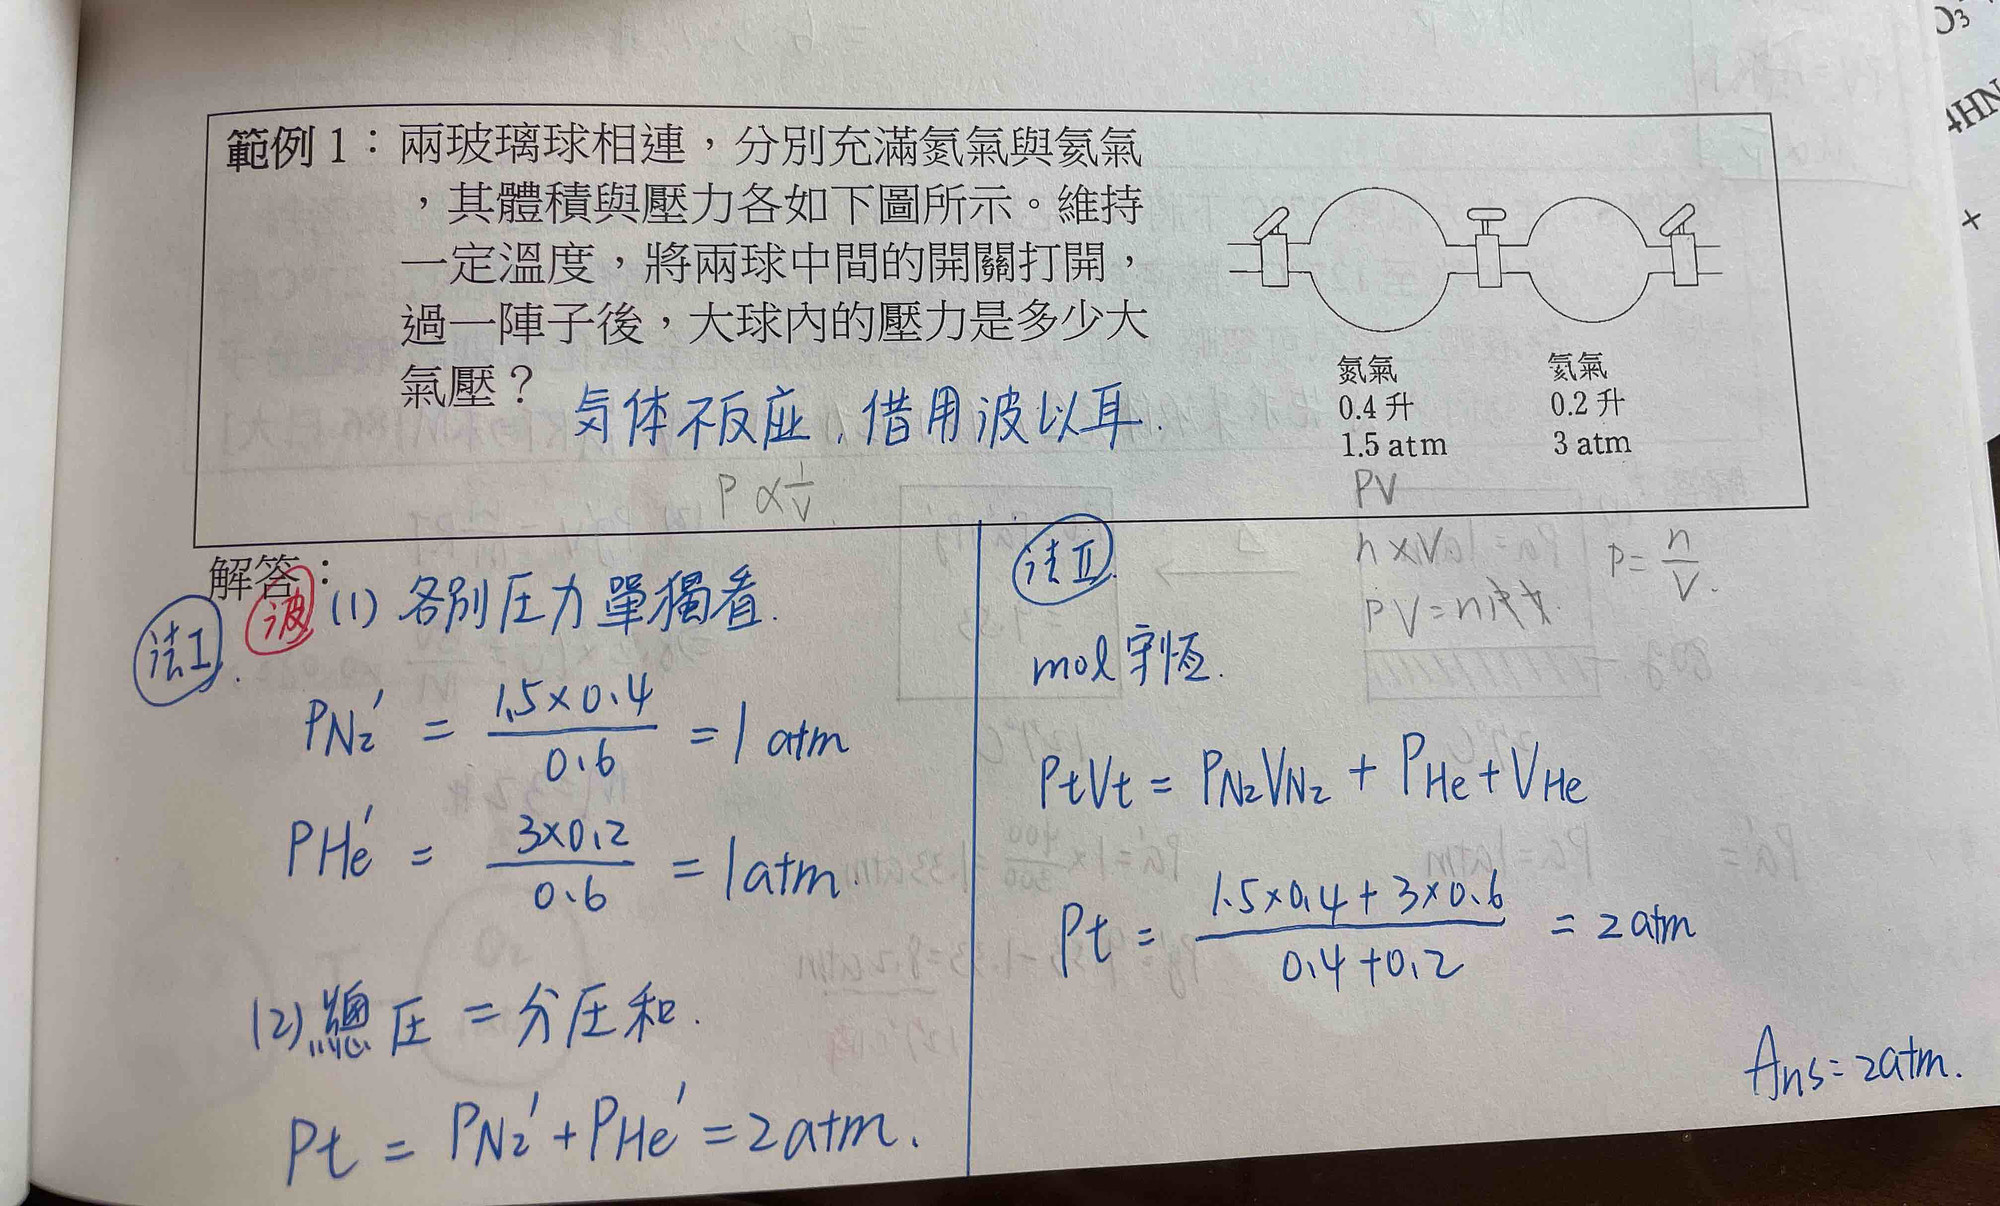 範例1：兩玻璃球相連，分別充滿氮氣與氦氣
，其體積與壓力各如下圖所示。維持
一定溫度，將兩球中間的開關打開，
過一陣子後，大球內的壓力是多少大
氣壓？
氣体不反应，借用波以耳.
P ∝ 1/V
氮氣
0.4 升
1.5 atm
氦氣
0.2 升
3 atm
PV
n×V
P = n/V.
PV = nRT.
解答：
法I.
波 (1) 各別圧力單獨看.
PN₂' = 1.5×0.4/0.6 = 1 atm
PHe' = 3×0.2/0.6 = 1 atm.
(2) 總圧 = 分圧和.
Pt = PN₂' + PHe' = 2 atm.
法II.
mol守恆.
PtVt = PN₂VN₂ + PHe+VHe
Pt = 1.5×0.4 + 3×0.6/0.4+0.2 = 2 atm
Ans = 2 atm.
O₃
4HN
+